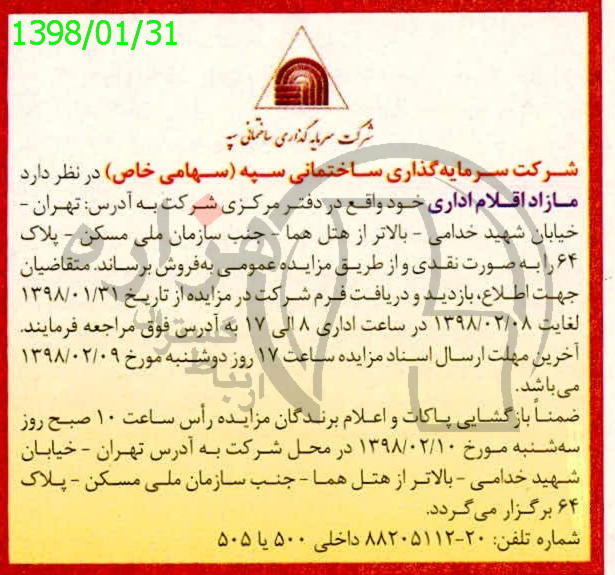 1398/01/31
شرکت سرمایه گذاری ساختمانی سپه
شرکت سرمایه‌گذاری ساختمانی سپه (سهامی خاص) در نظر دارد
مازاد اقلام اداری خود واقع در دفتر مرکزی شرکت به آدرس: تهران -
خیابان شهید خدامی - بالاتر از هتل هما - جنب سازمان ملی مسکن - پلاک
۶۴ را به صورت نقدی و از طریق مزایده عمومی به‌فروش برساند. متقاضیان
جهت اطلاع، بازدید و دریافت فرم شرکت در مزایده از تاریخ ۱۳۹۸/۰۱/۳۱
لغایت ۱۳۹۸/۰۲/۰۸ در ساعت اداری ۸ الی ۱۷ به آدرس فوق مراجعه فرمایند.
آخرین مهلت ارسال اسناد مزایده ساعت ۱۷ روز دوشنبه مورخ ۱۳۹۸/۰۲/۰۹
می‌باشد.
ضمناً بازگشایی پاکات و اعلام برندگان مزایده رأس ساعت ۱۰ صبح روز
سه‌شنبه مورخ ۱۳۹۸/۰۲/۱۰ در محل شرکت به آدرس تهران - خیابان
شهید خدامی - بالاتر از هتل هما - جنب سازمان ملی مسکن - پلاک
۶۴ برگزار می‌گردد.
شماره تلفن: ۲۰-۸۸۲۰۵۱۱۲ داخلی ۵۰۰ یا ۵۰۵
هزاره